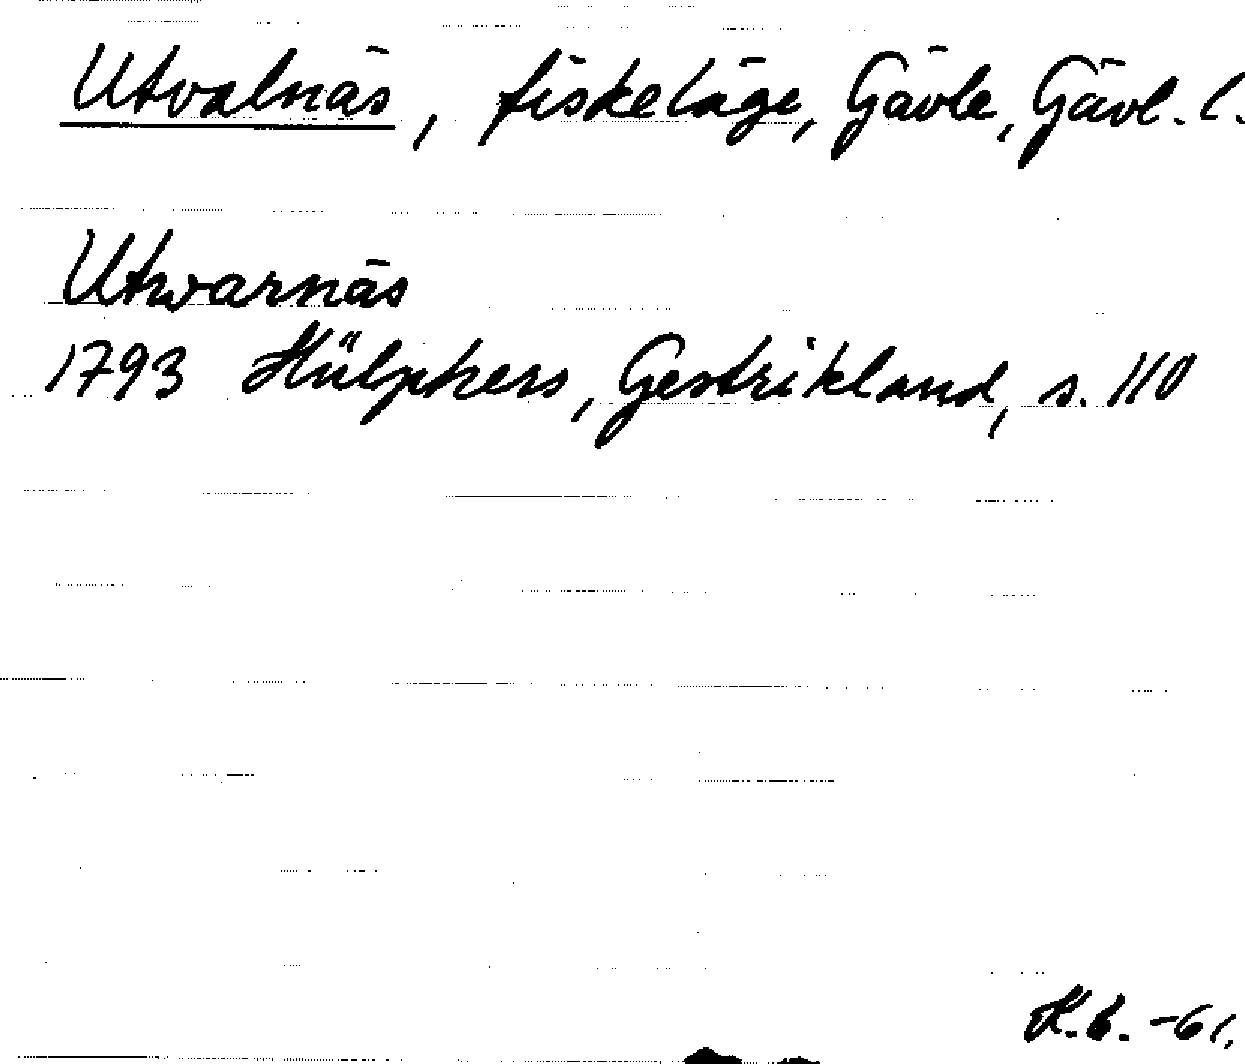 Utvalnäs, fiskeläge, Gävle, Gävl. l.
Utwarnäs
1793 Hülphers, Gestrikland, s. 110
K.b. -61.